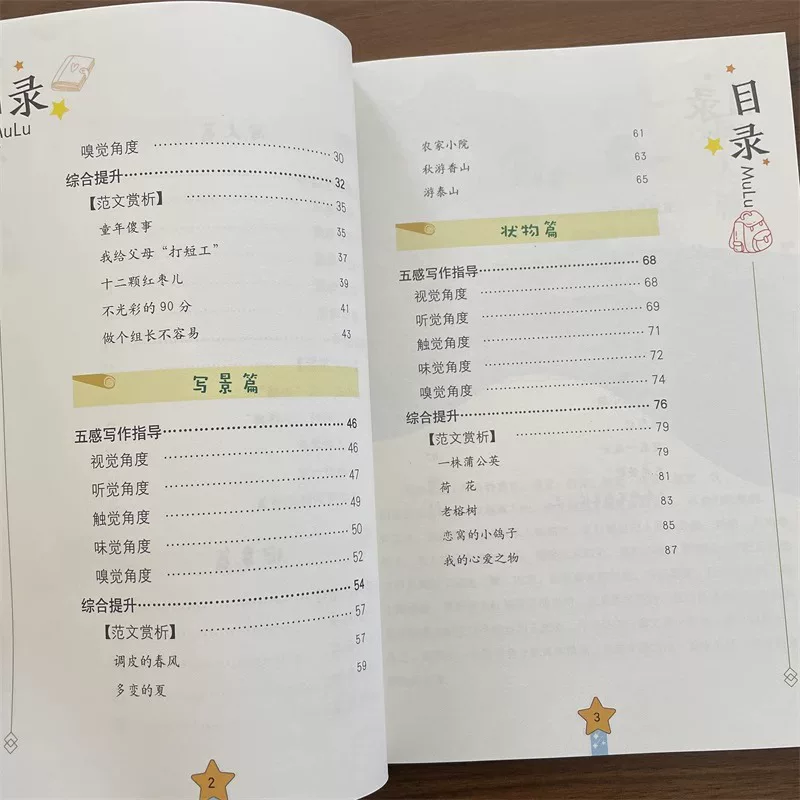 目录
MuLu
嗅觉角度 30
综合提升 32
【范文赏析】 35
童年傻事 35
我给父母“打短工” 37
十二颗红枣儿 39
不光彩的90分 41
做个组长不容易 43
写景篇
五感写作指导 46
视觉角度 46
听觉角度 47
触觉角度 49
味觉角度 50
嗅觉角度 52
综合提升 54
【范文赏析】 57
调皮的春风 57
多变的夏 59
2
目录
MuLu
农家小院 61
秋游香山 63
游泰山 65
状物篇
五感写作指导 68
视觉角度 68
听觉角度 69
触觉角度 71
味觉角度 72
嗅觉角度 74
综合提升 76
【范文赏析】 79
一株蒲公英 79
荷 花 81
老榕树 83
恋窝的小鸽子 85
我的心爱之物 87
3